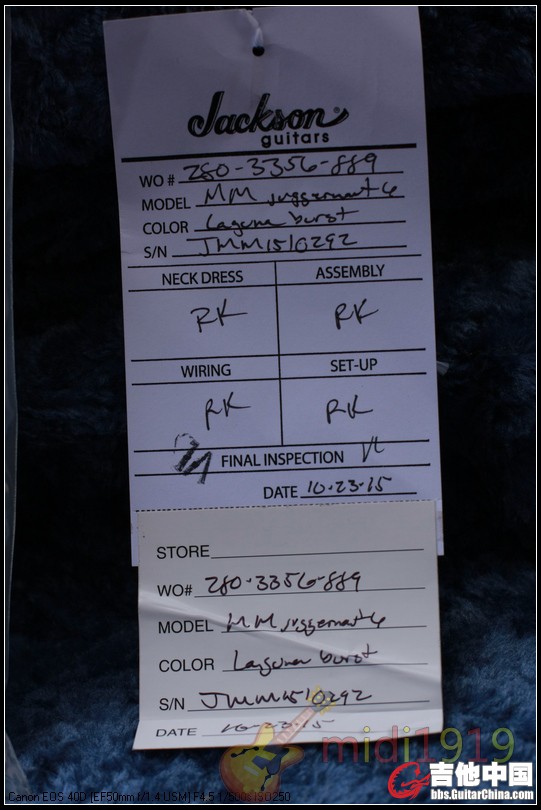 Jackson
guitars
WO # 280-3356-889
MODEL MM Juggernaut 6
COLOR Laguna burst
S/N JMM1510292
NECK DRESS ASSEMBLY
RK RK
WIRING SET-UP
RK RK
FINAL INSPECTION
DATE 10-23-15
STORE
WO# 280-3356-889
MODEL MM Juggernaut 6
COLOR Laguna burst
S/N JMM1510292
DATE 10-23-15
midi1919
Canon EOS 40D [EF50mm f/1.4 USM] F4.5 1/500s ISO250
吉他中国
bbs.GuitarChina.com